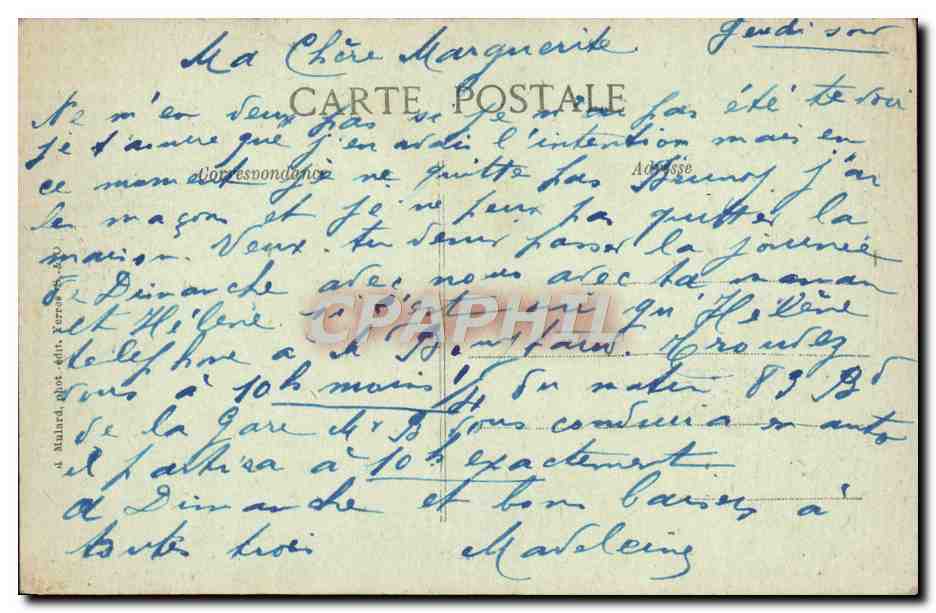 Jeudi soir
Ma Chère Marguerite
CARTE POSTALE
Ne m'en veux pas si je n'ai pas été te voir
je t'assure que j'en avais l'intention mais en
Correspondance
Adresse
ce moment je ne quitte pas Brunoy j'ai
les maçons et je ne peux pas quitter la
maison. Veux-tu venir passer la journée
de Dimanche avec nous avec ta maman
et Hélène si c'est oui qu'Hélène
téléphone à Mr Trouvez
vous à 10h moins 1/4 du matin 83 Bd
de la Gare Mr B vous conduira en auto
il partira à 10h exactement
à Dimanche et bons baisers à
toutes trois Madeleine
J. Mulard, phot.-édit. Yerres
CPAPHIL